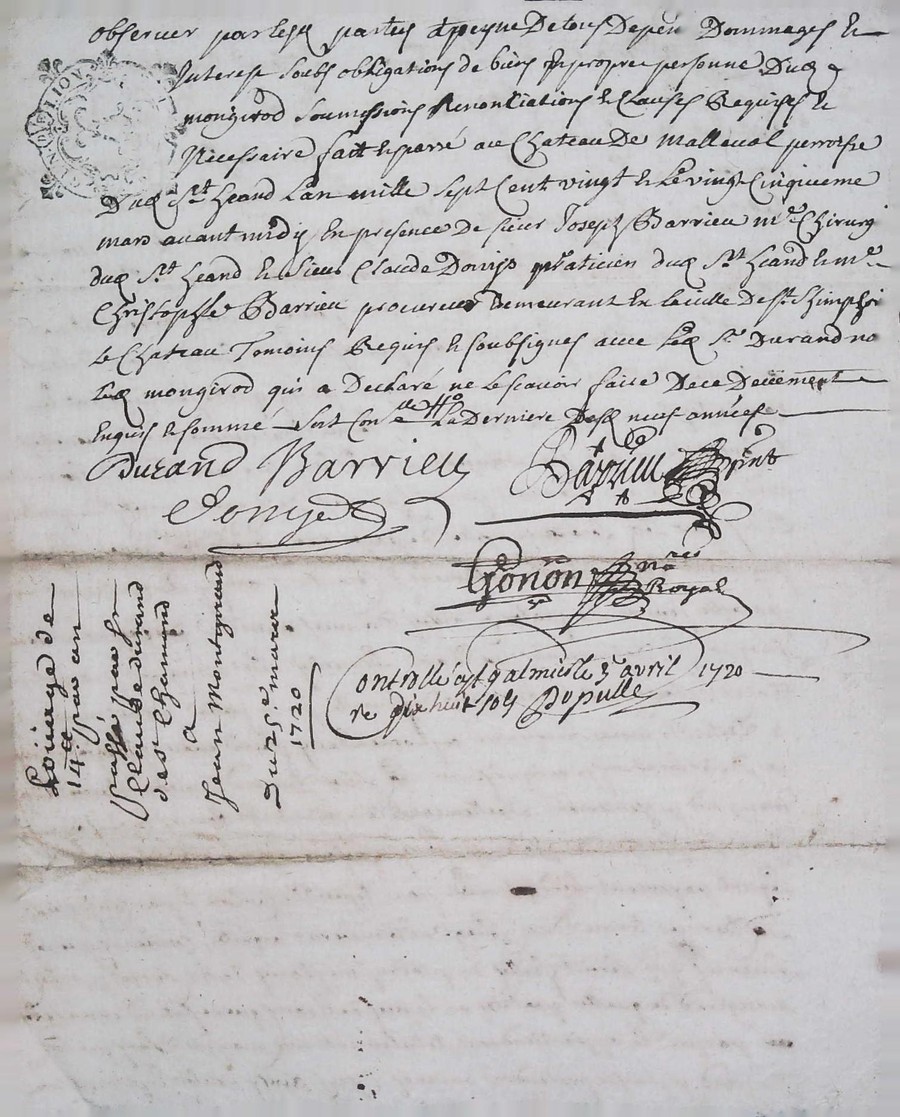 observer par lesd parties apeyne De tous Depen Dommages et
Interest soubs obligations de biens En propre personne Dud
mongirod soumissions Renontiations et Clauses Requises et
Necessaire fait et passé au Chateau De malleval perroisse
Dud St heand L'an mille sept Cent vingt et Le vingt Cinquieme
mars avant midy En presence De sieur Joseph Barrieu me Chirurg
dud St heand et sieur Claude pratticien dud St heand et me
Christophle Barrieu procureur Demeurant En la ville De St Shimphor
Le Chateau Temoins Requis et soubsignes avec Led Sr Durand no
Led mongirod qui a Declaré ne le scavoir faire De ce Deuement
Enquis et sommé La Derniere Desd neuf années
Durand Barrieu
Barrieu pnt
Gonon nore
Royal
Controllé a st galmier le 3e avril 1720
re dix huit sols Dupuller
Loüiage de
14 par an
passé par sr
Claude durand
de st Chamond
a
Jean Montgirand
Du 25e mars
1720